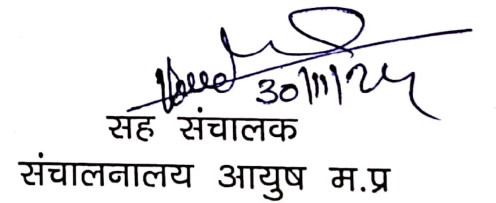 30/11/24
सह संचालक
संचालनालय आयुष म.प्र